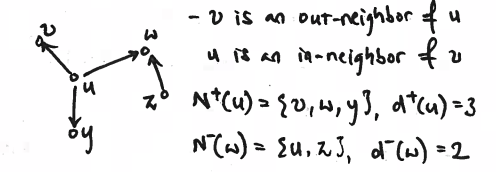 - v is an out-neighbor of u
u is an in-neighbor of v
N⁺(u) = {v, w, y}, d⁺(u) = 3
N⁻(w) = {u, z}, d⁻(w) = 2
v
w
u
z
y